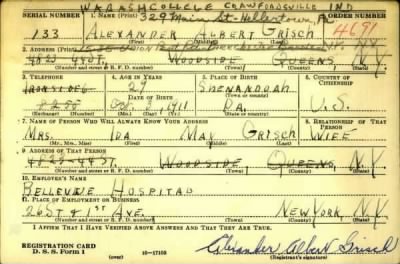 WABASH COLLEGE CRAWFORDSVILLE IND
329 Main St - Hellertown, Pa
SERIAL NUMBER
1. NAME (Print)
ORDER NUMBER
133
ALEXANDER ALBERT GRISCH
4691
2. ADDRESS (Print)
4823 44 ST. WOODSIDE QUEENS N.Y.
(Number and street or R. F. D. number) (Town) (County) (State)
3. TELEPHONE
4. AGE IN YEARS
5. PLACE OF BIRTH
6. COUNTRY OF CITIZENSHIP
IRONSIDE 6
29
SHENANDOAH
DATE OF BIRTH
(Town or county)
1911
PA.
U.S.
(Exchange) (Number)
(Mo.) (Day) (Yr.)
(State or country)
7. NAME OF PERSON WHO WILL ALWAYS KNOW YOUR ADDRESS
8. RELATIONSHIP OF THAT PERSON
MRS. IDA MAY GRISCH WIFE
(Mr., Mrs., Miss) (First) (Middle) (Last)
9. ADDRESS OF THAT PERSON
4823-44 ST. WOODSIDE QUEENS, N.Y.
(Number and street or R. F. D. number) (Town) (County) (State)
10. EMPLOYER'S NAME
BELLEVUE HOSPITAL
11. PLACE OF EMPLOYMENT OR BUSINESS
26 ST & 1ST AVE. NEW YORK, N.Y.
(Number and street or R. F. D. number) (Town) (County) (State)
I AFFIRM THAT I HAVE VERIFIED ABOVE ANSWERS AND THAT THEY ARE TRUE.
REGISTRATION CARD
D. S. S. Form 1
16-17105
Alexander Albert Grisch
(Registrant's signature)